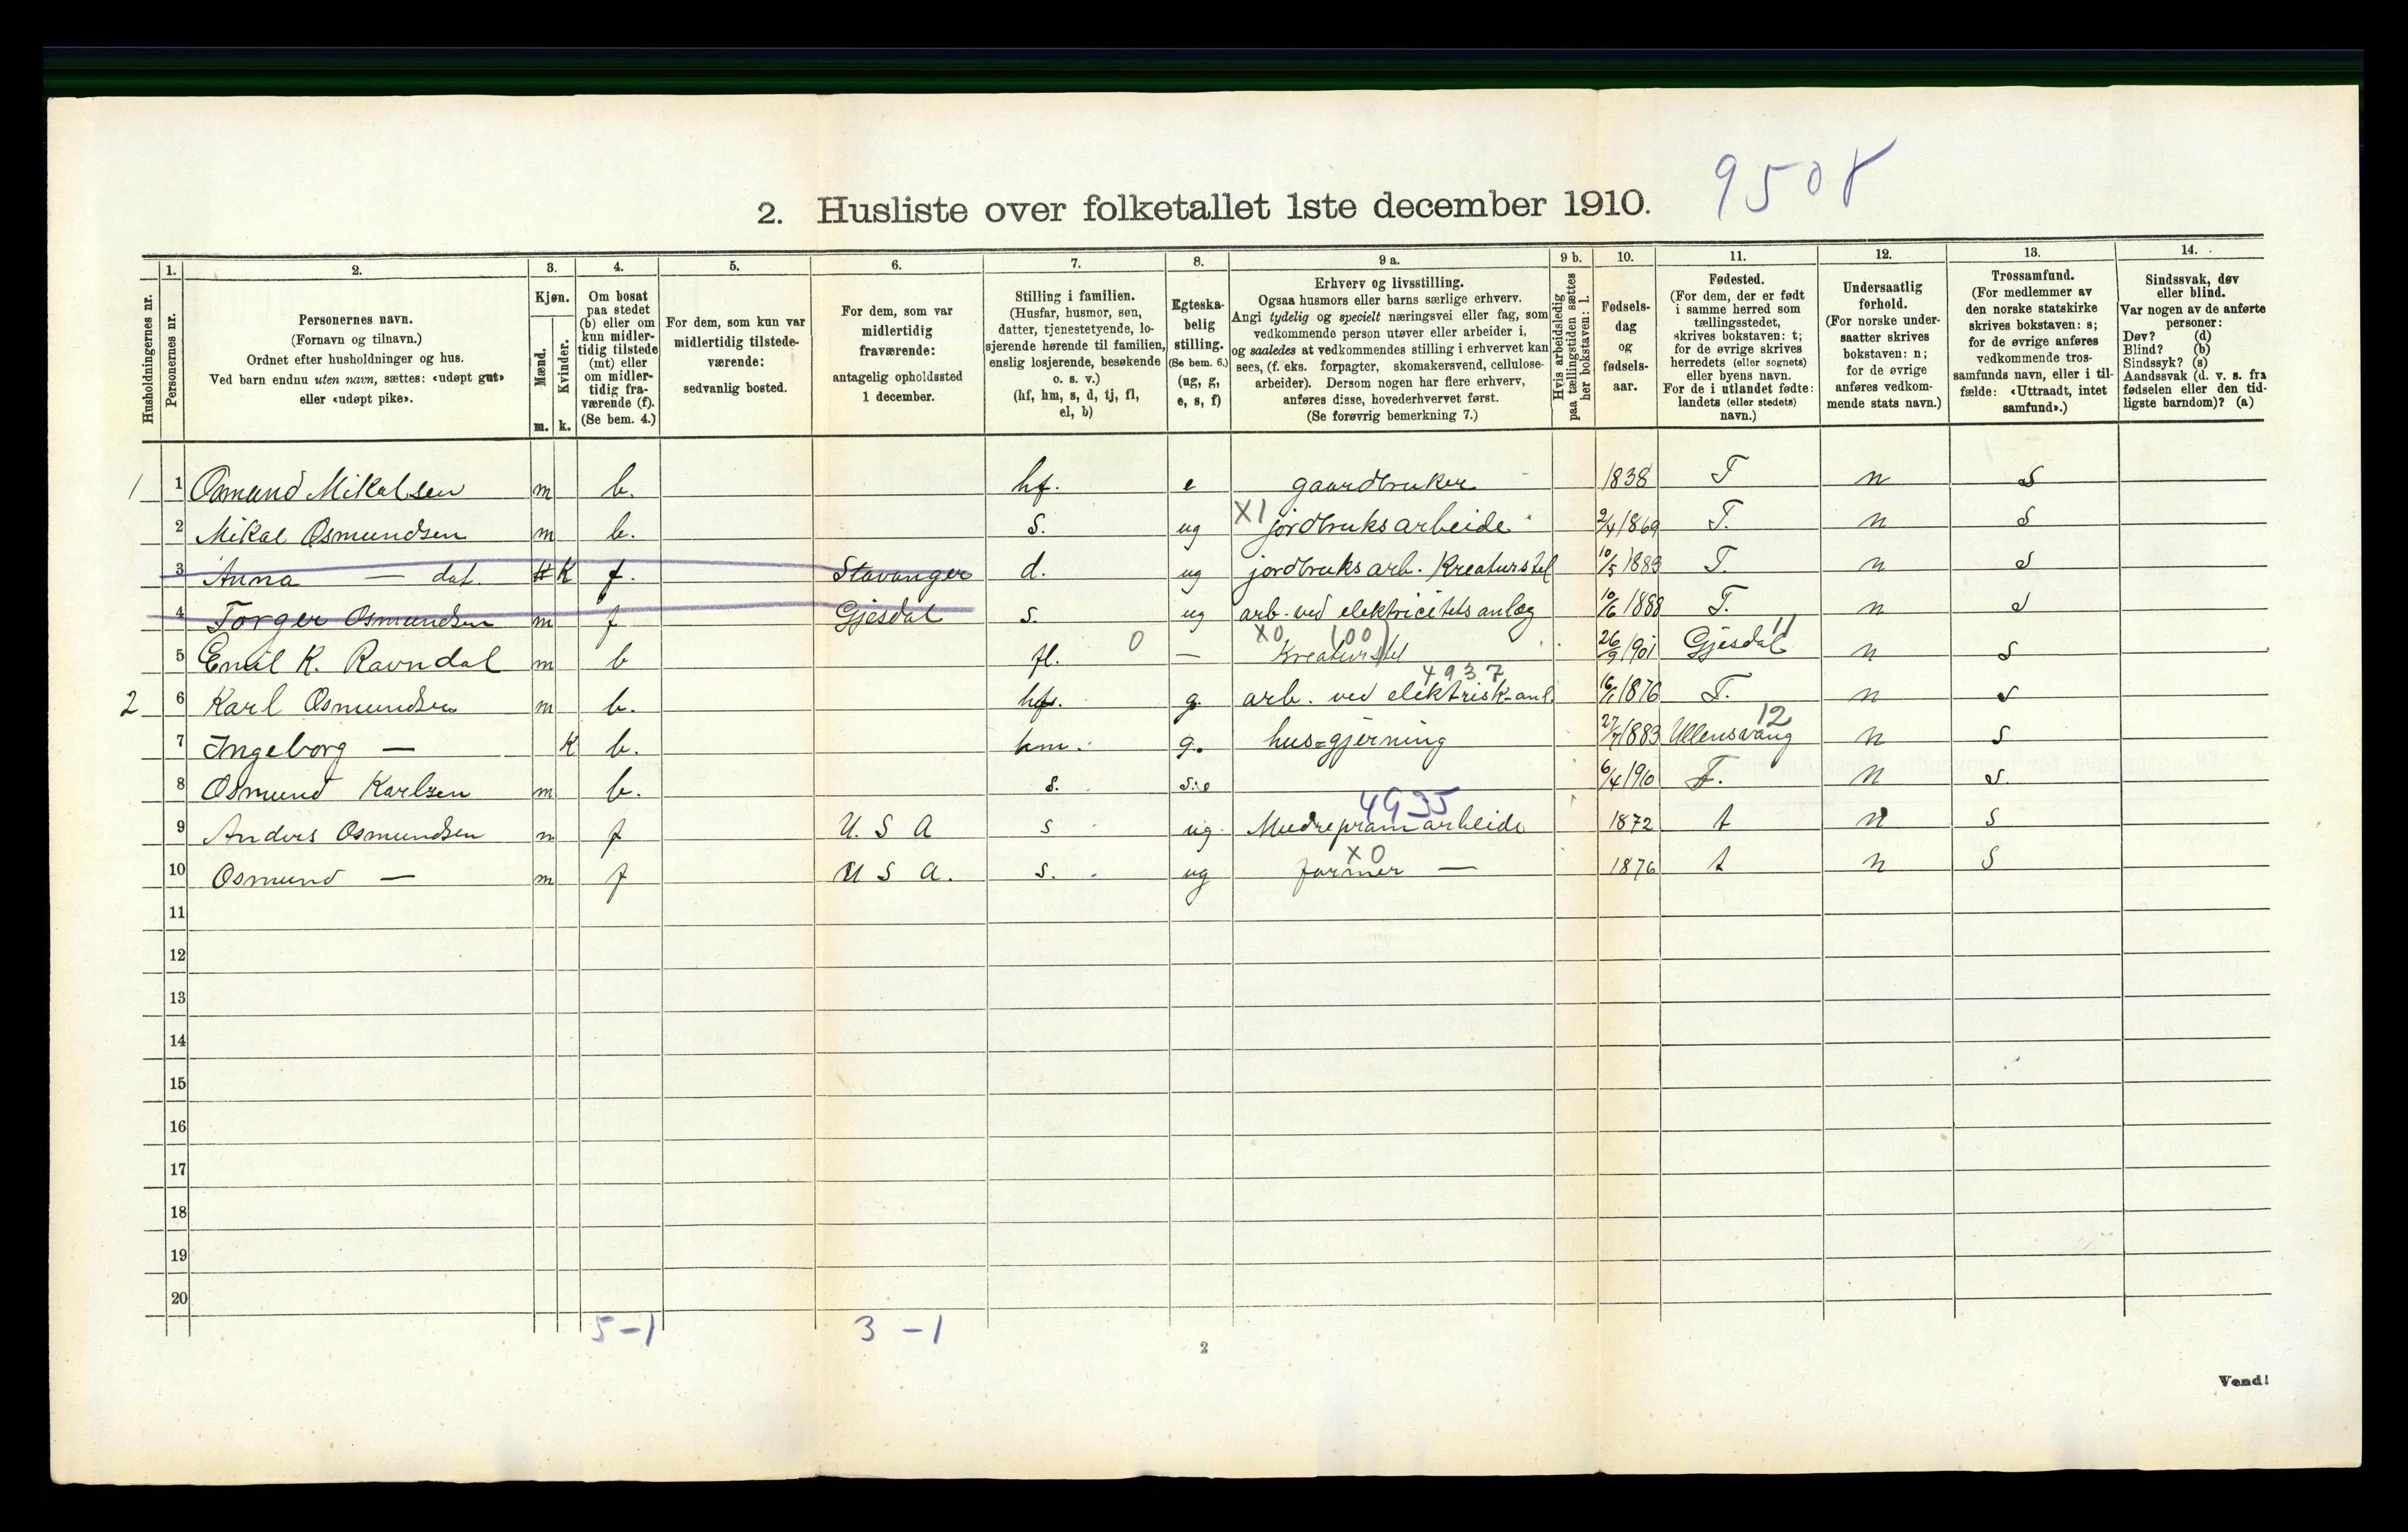 9508
2. Husliste over folketallet 1ste december 1910.
1. 2. 3. 4. 5. 6. 7. 8. 9 a. 9 b. 10. 11. 12. 13. 14.
Husholdningernes nr.
Personernes nr.
Personernes navn.
(Fornavn og tilnavn.)
Ordnet efter husholdninger og hus.
Ved barn endnu uten navn, sættes: «udøpt gut»
eller «udøpt pike».
Kjøn.
Mænd.
Kvinder.
m. k.
Om bosat
paa stedet
(b) eller om
kun midler-
tidig tilstede
(mt) eller
om midler-
tidig fra-
værende (f).
(Se bem. 4.)
For dem, som kun var
midlertidig tilstede-
værende:
sedvanlig bosted.
For dem, som var
midlertidig
fraværende:
antagelig opholdssted
1 december.
Stilling i familien.
(Husfar, husmor, søn,
datter, tjenestetyende, lo-
sjerende hørende til familien,
enslig losjerende, besøkende
o. s. v.)
(hf, hm, s, d, tj, fl,
el, b)
Egteska-
belig
stilling.
(Se bem. 6.)
(ug, g,
e, s, f)
Erhverv og livsstilling.
Ogsaa husmors eller barns særlige erhverv.
Angi tydelig og specielt næringsvei eller fag, som
vedkommende person utøver eller arbeider i,
og saaledes at vedkommendes stilling i erhvervet kan
sees, (f. eks. forpagter, skomakersvend, cellulose-
arbeider). Dersom nogen har flere erhverv,
anføres disse, hovederhvervet først.
(Se forøvrig bemerkning 7.)
Hvis arbeidsledig
paa tællingstiden sættes
her bokstaven: l.
Fødsels-
dag
og
fødsels-
aar.
Fødested.
(For dem, der er født
i samme herred som
tællingsstedet,
skrives bokstaven: t;
for de øvrige skrives
herredets (eller sognets)
eller byens navn.
For de i utlandet fødte:
landets (eller stedets)
navn.)
Undersaatlig
forhold.
(For norske under-
saatter skrives
bokstaven: n;
for de øvrige
anføres vedkom-
mende stats navn.)
Trossamfund.
(For medlemmer av
den norske statskirke
skrives bokstaven: s;
for de øvrige anføres
vedkommende tros-
samfunds navn, eller i til-
fælde: «Uttraadt, intet
samfund».)
Sindssvak, døv
eller blind.
Var nogen av de anførte
personer:
Døv? (d)
Blind? (b)
Sindssyk? (s)
Aandssvak (d. v. s. fra
fødselen eller den tid-
ligste barndom)? (a)
1 1 Osmund Mikalsen m b. hf. e gaardbruker 1838 T n S
2 Mikal Osmundsen m b. S. ug X1 jordbruksarbeide 2/4 1869 T. n S
3 Anna — dat. K f. Stavanger d. ug jordbruks arb. Kreaturstel 10/5 1883 T. n S
4 Torger Osmundsen m f Gjesdal s. ug arb. ved elektricitetsanlæg 10/6 1888 T. n S
5 Emil K. Ravndal m b fl. 0 — X0 (00) Kreaturstel 26/9 1901 Gjesdal 11 n S
2 6 Karl Osmundsen m b. hf. g. 4937 arb. ved elektrisk-anl. 16/1 1876 T. n S
7 Ingeborg — K b. hm. g. hus=gjerning 27/7 1883 Ullensvang 12 n S
8 Osmund Karlsen m b. s. 6/4 1910 T. n S.
9 Anders Osmundsen m f U. S A s ug. 4935 Mudrepram arbeide 1872 t n S
10 Osmund — m f U S A. s. ug X0 farmer — 1876 t n S
11
12
13
14
15
16
17
18
19
20
5-1 3-1
2
Vend!